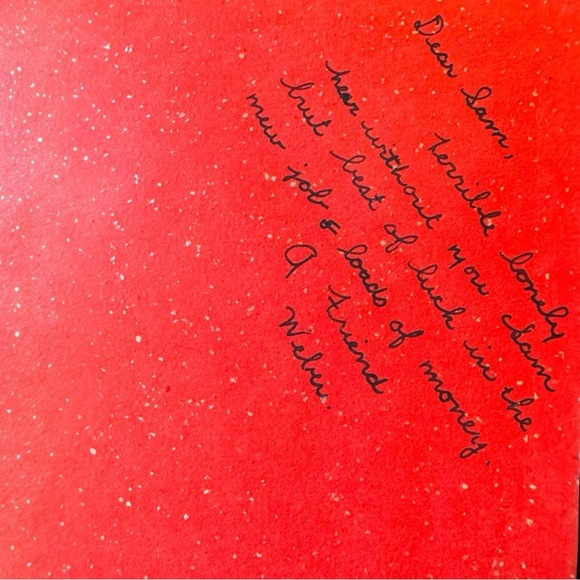 Dear Sam,
terrible lonely
hear without you Sam
but best of luck in the
new job & loads of money.
A Friend
Weber.